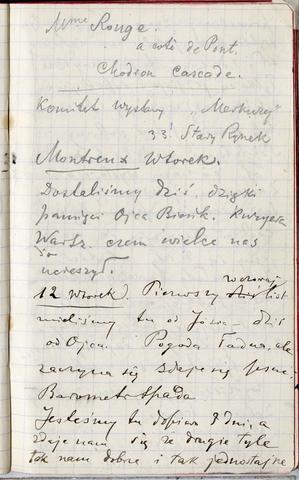 Mme Rouge.
a coté de Pont.
Chodron Cascade.
Komitet wystawy „Merkury"
33 Stary Rynek
Montreux Wtorek.
Dostaliśmy dziś dzięki
pamięci Ojca Kuryera
Warsz. czem wielce nas
ucieszył.
12 Wtorek. Pierwszy wczoraj list
mieliśmy tu od dziś
od Ojca. Pogoda ładna, ale
zaczyna się zdaje się psuć.
Barometr spada
Jesteśmy tu dopiero 8 dni, a
zdaje nam się że drugie tyle
tak nam dobrze i tak jednostajnie